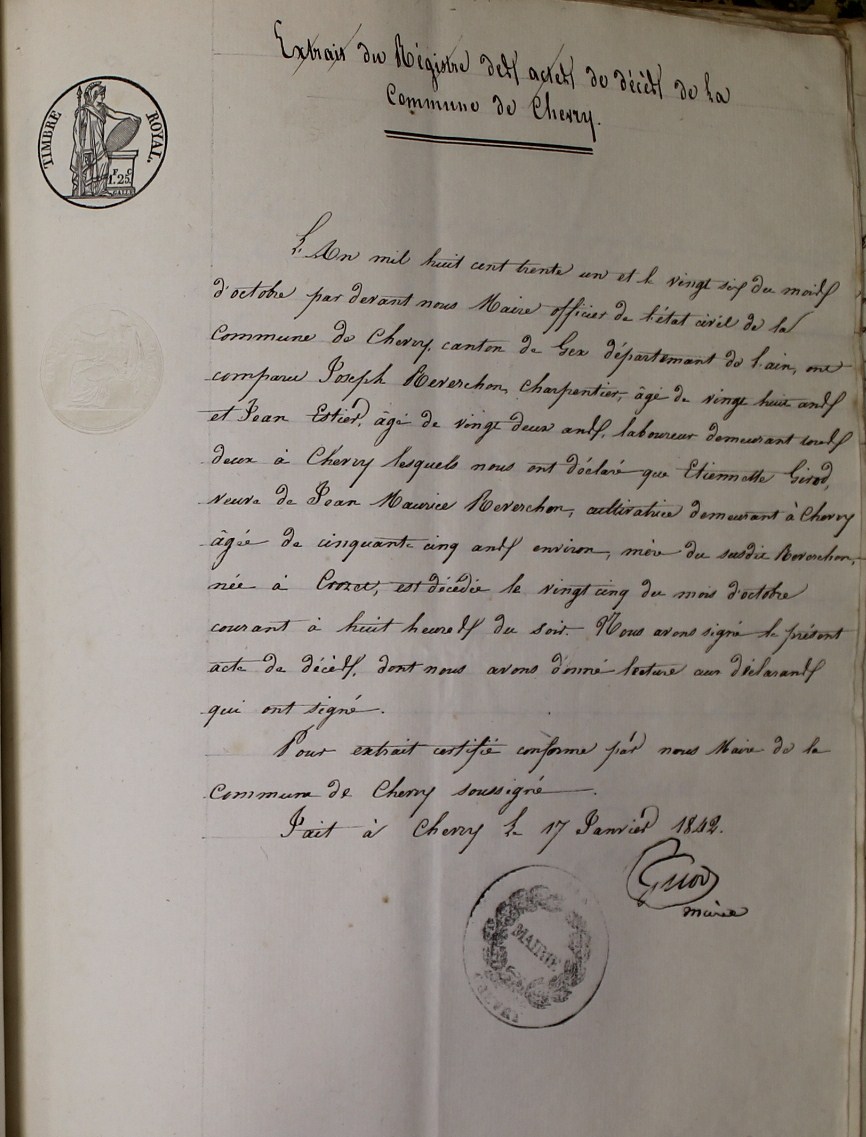 TIMBRE ROYAL.
F C
1.25.
Extrait du Régistre des actes de décès de la
Commune de Chevry.
L'An mil huit cent trente un et le vingt six du mois
d'octobre par devant nous Maire officier de l'état civil de la
Commune de Chevry, canton de Gex département de l'ain, ont
comparu Joseph Reverchon, charpentier, âgé de vingt huit ans
et Jean Estier, âgé de vingt deux ans, laboureur demeurant tous
deux à Chevry lesquels nous ont déclaré que Etiennette Girod,
veuve de Jean Maurice Reverchon, cultivatrice demeurant à Chevry
âgée de cinquante cinq ans environ, mère du susdit Reverchon,
née à Crozet, est décédée le vingt cinq du mois d'octobre
courant à huit heures du soir. Nous avons signé le présent
acte de décès, dont nous avons donné lecture aux déclarants
qui ont signé.
Pour extrait certifié conforme par nous Maire de la
Commune de Chevry soussigné.
Fait à Chevry le 17 Janvier 1842.
maire
MAIRIE